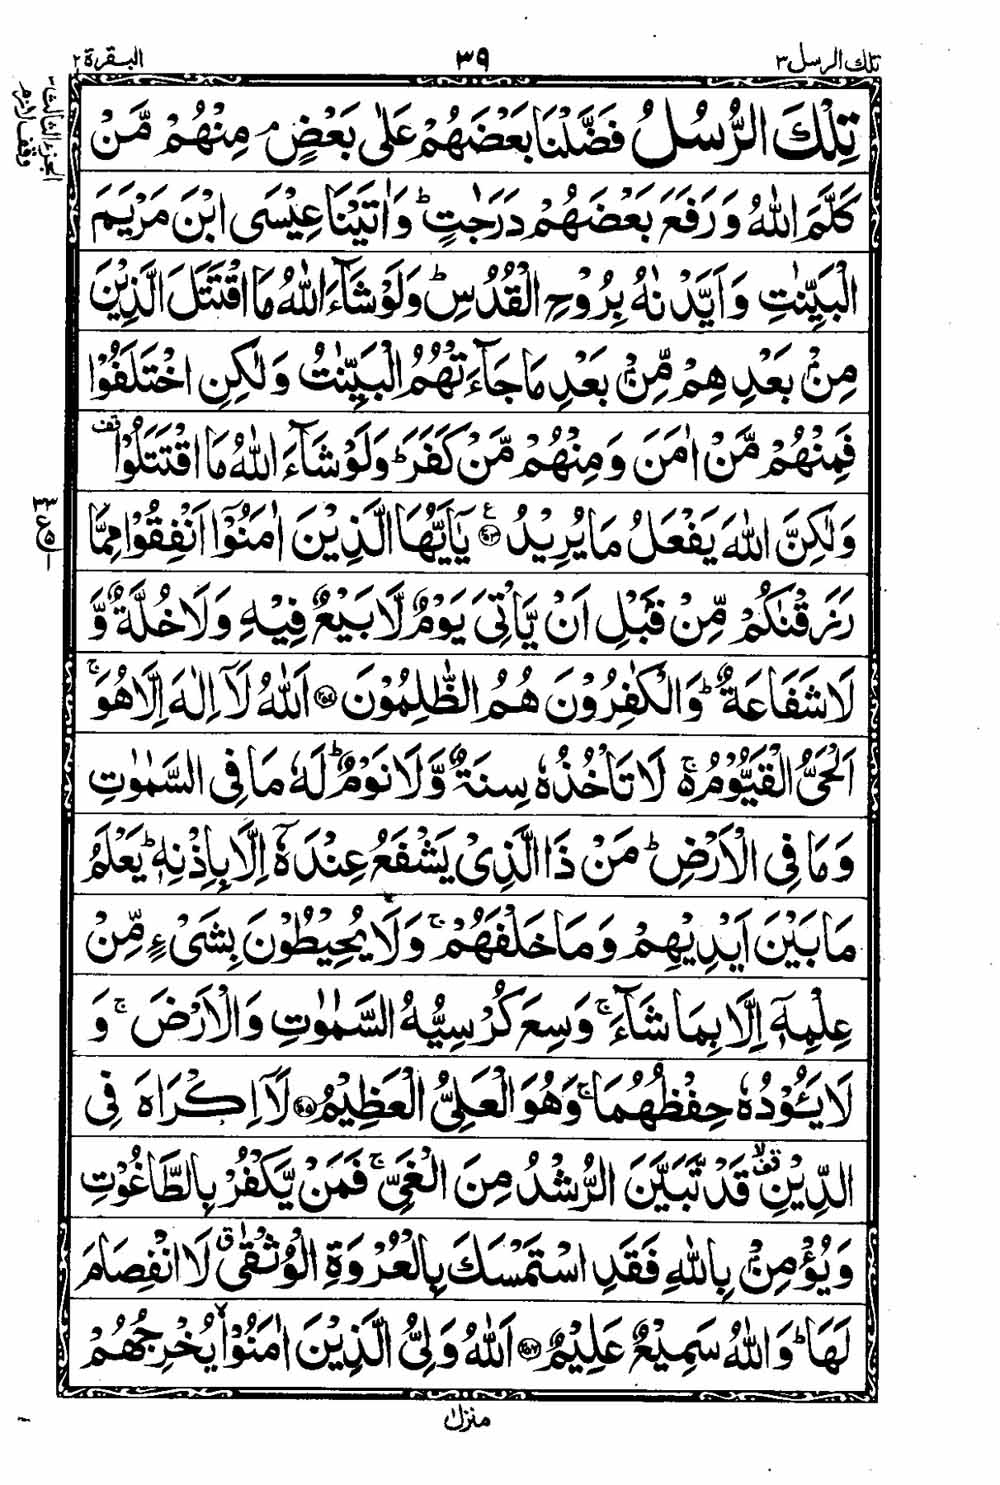 تلك الرسل ٣
٣٩
البقرة ٢
تِلْكَ الرُّسُلُ فَضَّلْنَا بَعْضَهُمْ عَلٰى بَعْضٍ ۘ مِنْهُمْ مَّنْ
كَلَّمَ اللّٰهُ وَ رَفَعَ بَعْضَهُمْ دَرَجٰتٍ ؕ وَ اٰتَیْنَا عِیْسَی ابْنَ مَرْیَمَ
الْبَیِّنٰتِ وَ اَیَّدْنٰهُ بِرُوْحِ الْقُدُسِ ؕ وَ لَوْ شَآءَ اللّٰهُ مَا اقْتَتَلَ الَّذِیْنَ
مِنْۢ بَعْدِهِمْ مِّنْۢ بَعْدِ مَا جَآءَتْهُمُ الْبَیِّنٰتُ وَ لٰكِنِ اخْتَلَفُوْا
فَمِنْهُمْ مَّنْ اٰمَنَ وَ مِنْهُمْ مَّنْ كَفَرَ ؕ وَ لَوْ شَآءَ اللّٰهُ مَا اقْتَتَلُوْا قف
وَ لٰكِنَّ اللّٰهَ یَفْعَلُ مَا یُرِیْدُ ع ۲۵۳ یٰۤاَیُّهَا الَّذِیْنَ اٰمَنُوْۤا اَنْفِقُوْا مِمَّا
رَزَقْنٰكُمْ مِّنْ قَبْلِ اَنْ یَّاْتِیَ یَوْمٌ لَّا بَیْعٌ فِیْهِ وَ لَا خُلَّةٌ وَّ
لَا شَفَاعَةٌ ؕ وَ الْكٰفِرُوْنَ هُمُ الظّٰلِمُوْنَ ۲۵۴ اَللّٰهُ لَاۤ اِلٰهَ اِلَّا هُوَ ۚ
اَلْحَیُّ الْقَیُّوْمُ ۚ لَا تَاْخُذُهٗ سِنَةٌ وَّ لَا نَوْمٌ ؕ لَهٗ مَا فِی السَّمٰوٰتِ
وَ مَا فِی الْاَرْضِ ؕ مَنْ ذَا الَّذِیْ یَشْفَعُ عِنْدَهٗۤ اِلَّا بِاِذْنِهٖ ؕ یَعْلَمُ
مَا بَیْنَ اَیْدِیْهِمْ وَ مَا خَلْفَهُمْ ۚ وَ لَا یُحِیْطُوْنَ بِشَیْءٍ مِّنْ
عِلْمِهٖۤ اِلَّا بِمَا شَآءَ ۚ وَسِعَ كُرْسِیُّهُ السَّمٰوٰتِ وَ الْاَرْضَ ۚ وَ
لَا یَـُٔوْدُهٗ حِفْظُهُمَا ۚ وَ هُوَ الْعَلِیُّ الْعَظِیْمُ ۲۵۵ لَاۤ اِكْرَاهَ فِی
الدِّیْنِ قف لا قَدْ تَّبَیَّنَ الرُّشْدُ مِنَ الْغَیِّ ۚ فَمَنْ یَّكْفُرْ بِالطَّاغُوْتِ
وَ یُؤْمِنْۢ بِاللّٰهِ فَقَدِ اسْتَمْسَكَ بِالْعُرْوَةِ الْوُثْقٰی ق لَا انْفِصَامَ
لَهَا ؕ وَ اللّٰهُ سَمِیْعٌ عَلِیْمٌ ۲۵۶ اَللّٰهُ وَلِیُّ الَّذِیْنَ اٰمَنُوْا ۙ یُخْرِجُهُمْ
الجزء الثالث ٣
وقف لازم
منزل